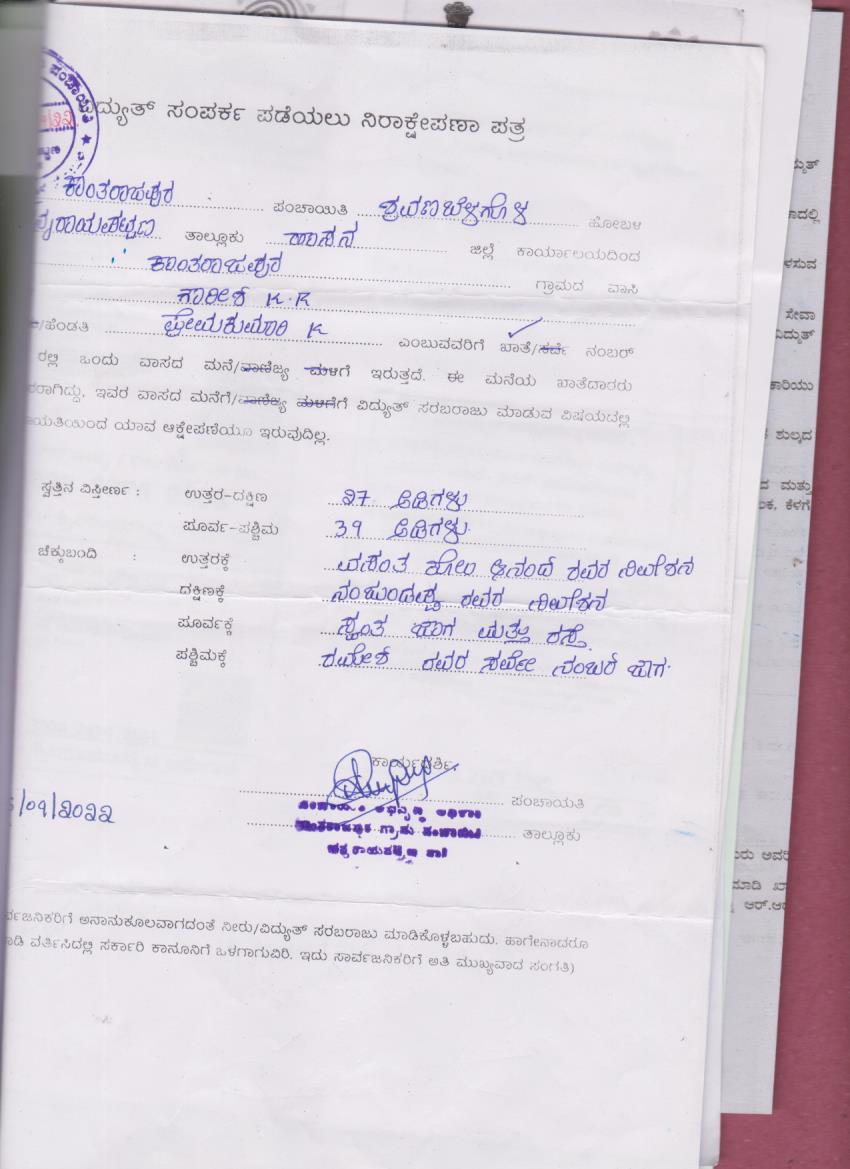 ವಿದ್ಯುತ್ ಸಂಪರ್ಕ ಪಡೆಯಲು ನಿರಾಕ್ಷೇಪಣಾ ಪತ್ರ
ಕಾಂತರಾಜಪುರ ಪಂಚಾಯಿತಿ ಶ್ರವಣಬೆಳಗೊಳ ಹೋಬಳಿ
ರಾಯಪಟ್ಟಣ ತಾಲ್ಲೂಕು ಹಾಸನ ಜಿಲ್ಲೆ ಕಾರ್ಯಾಲಯದಿಂದ
ಕಾಂತರಾಜಪುರ ಗ್ರಾಮದ ವಾಸಿ
K.R
/ಹೆಂಡತಿ ಪ್ರೇಮಕುಮಾರಿ K ಎಂಬುವವರಿಗೆ ಖಾತೆ/ಸರ್ವೆ ನಂಬರ್
ರಲ್ಲಿ ಒಂದು ವಾಸದ ಮನೆ/ವಾಣಿಜ್ಯ ಮಳಿಗೆ ಇರುತ್ತದೆ. ಈ ಮನೆಯ ಖಾತೆದಾರರು
ರಾಗಿದ್ದು, ಇವರ ವಾಸದ ಮನೆಗೆ/ವಾಣಿಜ್ಯ ಮಳಿಗೆಗೆ ವಿದ್ಯುತ್ ಸರಬರಾಜು ಮಾಡುವ ವಿಷಯದಲ್ಲಿ
ಯತಿಯಿಂದ ಯಾವ ಆಕ್ಷೇಪಣೆಯೂ ಇರುವುದಿಲ್ಲ.
ಸ್ವತ್ತಿನ ವಿಸ್ತೀರ್ಣ : ಉತ್ತರ-ದಕ್ಷಿಣ ೨7 ಅಡಿಗಳು
ಪೂರ್ವ-ಪಶ್ಚಿಮ 39 ಅಡಿಗಳು
ಚೆಕ್ಕುಬಂದಿ : ಉತ್ತರಕ್ಕೆ ವಸಂತ ಕೋಂ ಆನಂದ ರವರ ನಿವೇಶನ
ದಕ್ಷಿಣಕ್ಕೆ ನಂಜುಂಡಪ್ಪ ರವರ ನಿವೇಶನ
ಪೂರ್ವಕ್ಕೆ ಸ್ವಂತ ಜಾಗ ಮತ್ತು ರಸ್ತೆ
ಪಶ್ಚಿಮಕ್ಕೆ ರಮೇಶ ರವರ ಸರ್ವೇ ನಂಬರ್ ಜಾಗ
ಕಾರ್ಯದರ್ಶಿ,
ಪಂಚಾಯತಿ
/09/೩೦೩೩ ತಾಲ್ಲೂಕು
ರ್ವಜನಿಕರಿಗೆ ಅನಾನುಕೂಲವಾಗದಂತೆ ನೀರು/ವಿದ್ಯುತ್ ಸರಬರಾಜು ಮಾಡಿಕೊಳ್ಳಬಹುದು. ಹಾಗೇನಾದರೂ
ಾಡಿ ವರ್ತಿಸಿದಲ್ಲಿ ಸರ್ಕಾರಿ ಕಾನೂನಿಗೆ ಒಳಗಾಗುವಿರಿ. ಇದು ಸಾರ್ವಜನಿಕರಿಗೆ ಅತಿ ಮುಖ್ಯವಾದ ಸಂಗತಿ)